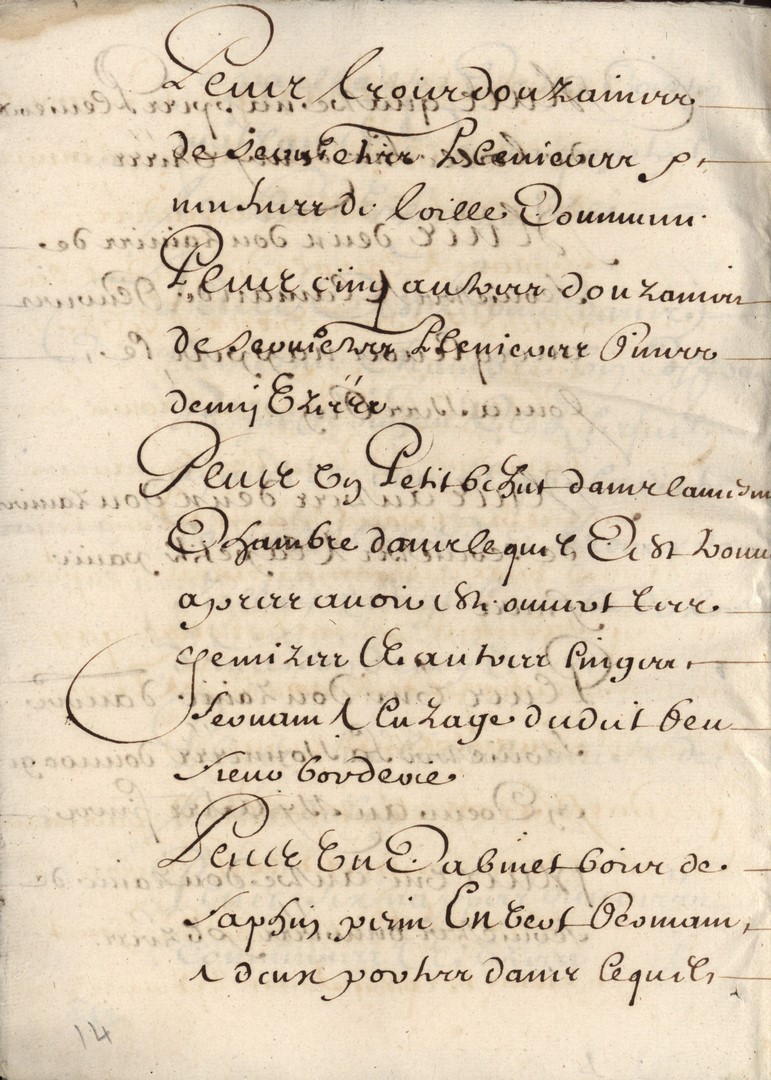 Plus trois douzaines
de serviettes plenieres
de toille commune
Plus cinq autres douzaines
de serviettes plenieres fines
demy uzées
Plus un petit bahut dans la mesme
chambre dans lequel c'est trouvé
apres avoir esté ouvert les
chemizes & autres linges
servant a l'uzage dudit feu
sieur borderie
Plus un cabinet bois de
saphin peint en vert fermant
a deux portes dans lequel
14